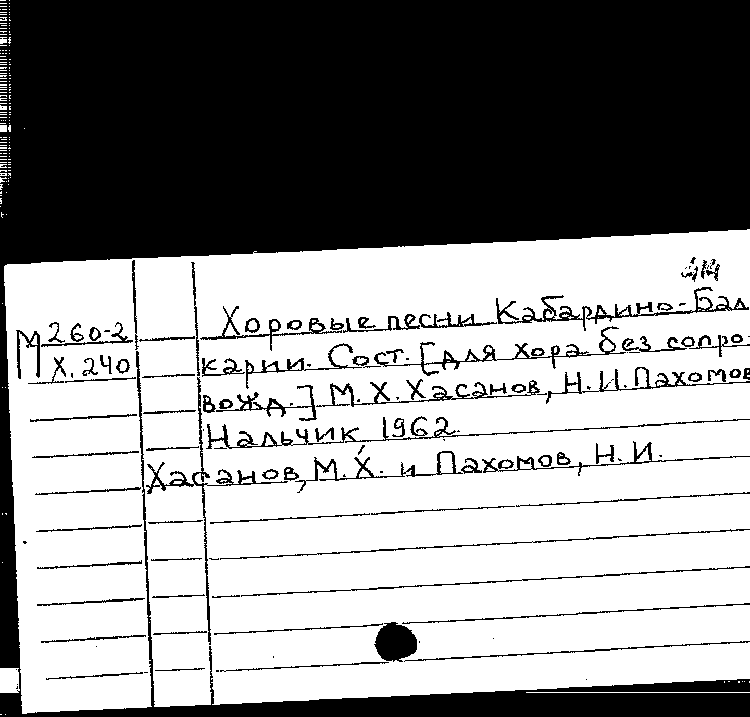 М 260-2
Х. 240
Хоровые песни Кабардино-Бал
карии. Сост. [для хора без сопро-
вожд.] М. Х. Хасанов, Н. И. Пахомов
Нальчик 1962.
Хасанов, М. Х. и Пахомов, Н. И.